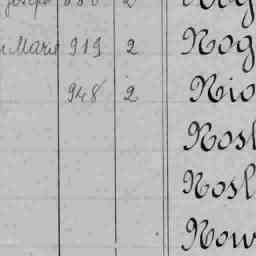 Joseph 2
Marie 919 2 Nog
948 2 Nio
Nosl
Nosl
Now